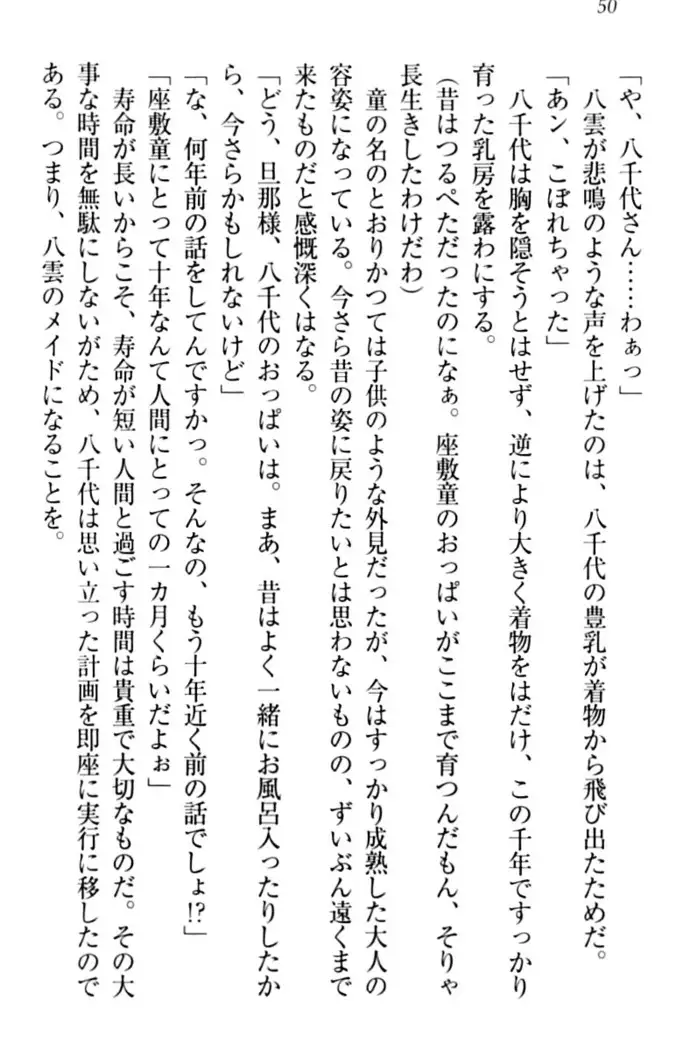 50
「や、八千代さん……わぁっ」
八雲が悲鳴のような声を上げたのは、八千代の豊乳が着物から飛び出たためだ。
「あン、こぼれちゃった」
八千代は胸を隠そうとはせず、逆により大きく着物をはだけ、この千年ですっかり
育った乳房を露わにする。
(昔はつるぺただったのになぁ。座敷童のおっぱいがここまで育つんだもん、そりゃ
長生きしたわけだわ)
童の名のとおりかつては子供のような外見だったが、今はすっかり成熟した大人の
容姿になっている。今さら昔の姿に戻りたいとは思わないものの、ずいぶん遠くまで
来たものだと感慨深くはなる。
「どう、旦那様、八千代のおっぱいは。まあ、昔はよく一緒にお風呂入ったりしたか
ら、今さらかもしれないけど」
「な、何年前の話をしてんですかっ。そんなの、もう十年近く前の話でしょ!?」
「座敷童にとって十年なんて人間にとっての一カ月くらいだよぉ」
寿命が長いからこそ、寿命が短い人間と過ごす時間は貴重で大切なものだ。その大
事な時間を無駄にしないがため、八千代は思い立った計画を即座に実行に移したので
ある。つまり、八雲のメイドになることを。